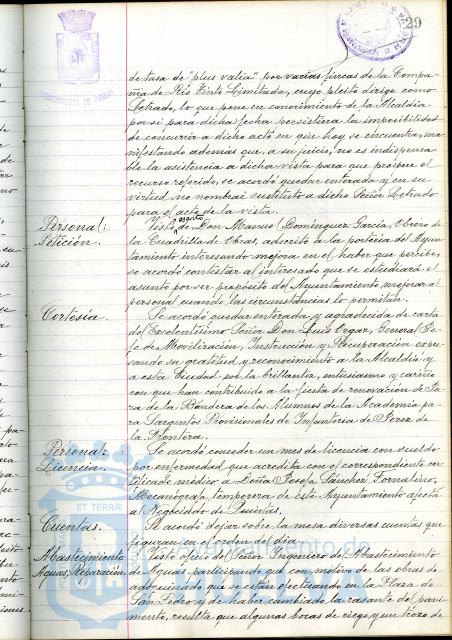 29
de tasa de "plus valia" por varias fincas de la Compa-
ñia de Rio Tinto Limitada, cuyo pleito dirige como
Letrado, lo que pone en conocimiento de la Alcaldia
por si para dicha fecha persistiera la imposibilidad
de concurrir a dicho acto en que hoy se encuentra, ma-
nifestando además que, a su juicio, no es indispensa-
ble la asistencia a dicha vista para que prospere el
recurso referido, se acordó quedar enterada y en su
virtud no nombrar sustituto a dicho Señor Letrado
para el acto de la vista.
Personal:
Petición.
Visto escrito de Don Manuel Domínguez García, Obrero de
la Cuadrilla de Obras, adscrito a la portería del Ayun-
tamiento interesando mejora en el haber que percibe,
se acordó contestar al interesado que se estudiará el
asunto por ser propósito del Ayuntamiento, mejorar al
personal cuando las circunstancias lo permitan.
Cortesía.
Se acordó quedar enterada y agradecida de carta
del Excelentísimo Señor Don Luis Orgaz, General Je-
fe de Movilización, Instrucción y Recuperación expre-
sando su gratitud y reconocimiento a la Alcaldía y
a esta Ciudad por la brillantez, entusiasmo y cariño
con que han contribuido a la fiesta de renovación de Ju-
ra de la Bandera de los Alumnos de la Academia pa-
ra Sargentos Provisionales de Infantería de Jerez de
la Frontera.
Personal:
Licencia.
Se acordó conceder un mes de licencia con sueldo
por enfermedad que acredita con el correspondiente cer-
tificado médico a Doña Josefa Sánchez Tornatino,
Mecanógrafa temporera de este Ayuntamiento afecta
al Negociado de Quintas.
Cuentas.
Se acordó dejar sobre la mesa diversas cuentas que
figuran en el orden del día.
Abastecimiento
Aguas, Reparación.
Visto oficio del Señor Ingeniero de Abastecimiento
de Aguas participando que con motivo de las obras de
adoquinado que se están efectuando en la Plaza de
San Pedro y de haber cambiado la rasante del pavi-
mento, resulta que algunas bocas de riego y un trozo de